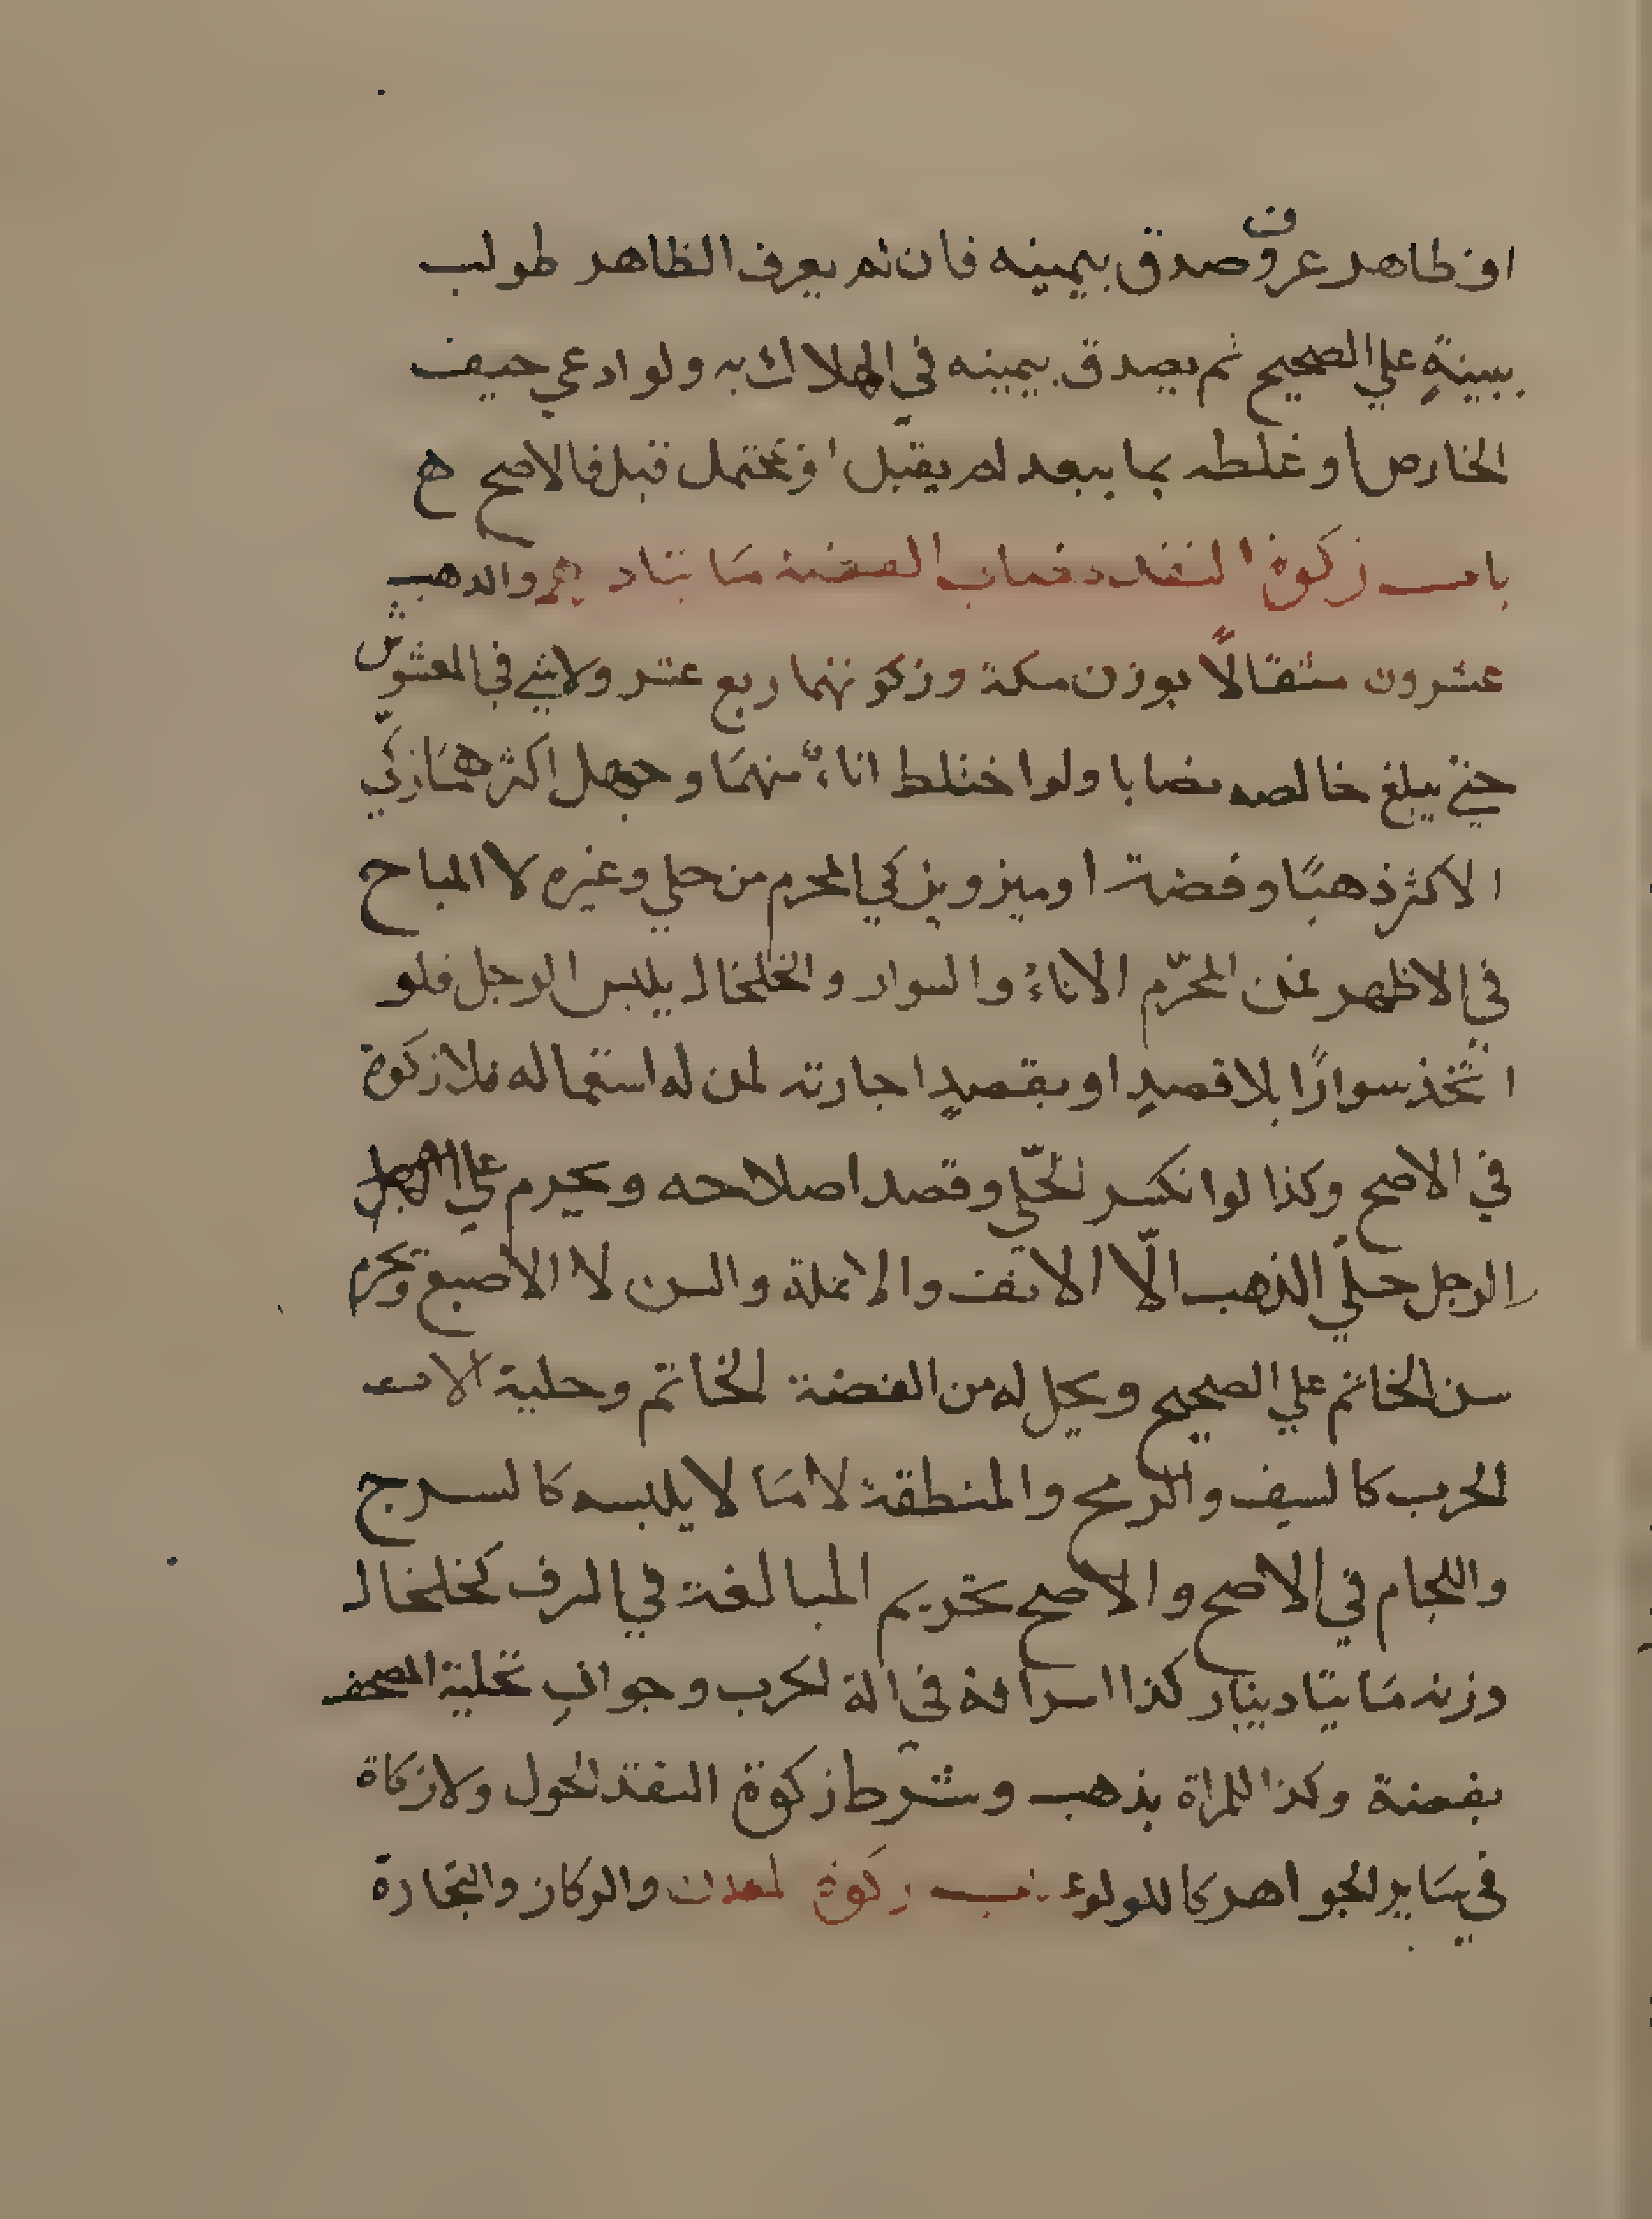 او ظاهر عرف وصدق بيمينه فان لم يعرف الظاهر طولب
ببينةٍ علي الصحيح ثم يصدق بيمينه في الهلاك به ولو ادعي حيف
الخارص او غلطه بما يبعد لم يقبل او محتمل قبل فالاصح
باب زكوة النقد نصاب الفضة مايتا درهم والذهب
عشرون مثقالًا بوزن مكة وزكوتهما ربع عشر ولا شي في المغشوش
حتي يبلغ خالصه نصابا ولو اختلط اناءٌ منهما وجهل اكثرهما زكّي
الاكثر ذهبًا وفضة او ميز ويزكي المحرم من حلي وغيره لا المباح
في الاظهر فمن المحرّم الاناء والسوار والخلخال يلبس الرجل فلو
اتّخذ سوارًا بلا قصدٍ او بقصدٍ اجارته لمن له استعماله فلا زكوة
في الاصح وكذا لو انكسر الحلّي وقصد اصلاحه ويحرم علي
الرجل حلّي الذهب الّا الانف والانملة والسن لا الاصبع ويحرم
سن الخاتم علي الصحيح ويحل له من الفضة الخاتم وحلية الات
الحرب كالسيف والرمح والمنطقة لا ما لا يلبسه كالسرج
واللجام في الاصح والاصح تحريم المبالغة في السرف كخلخال
وزنه مايتا دينار كذا اسرافه في الة الحرب وجواز تحلية المصحف
بفضة وكذا للمراة بذهب وشرط زكوة النقد الحول ولا زكاة
في ساير الجواهر كاللولوء باب زكوة المعدن والركاز والتجارة